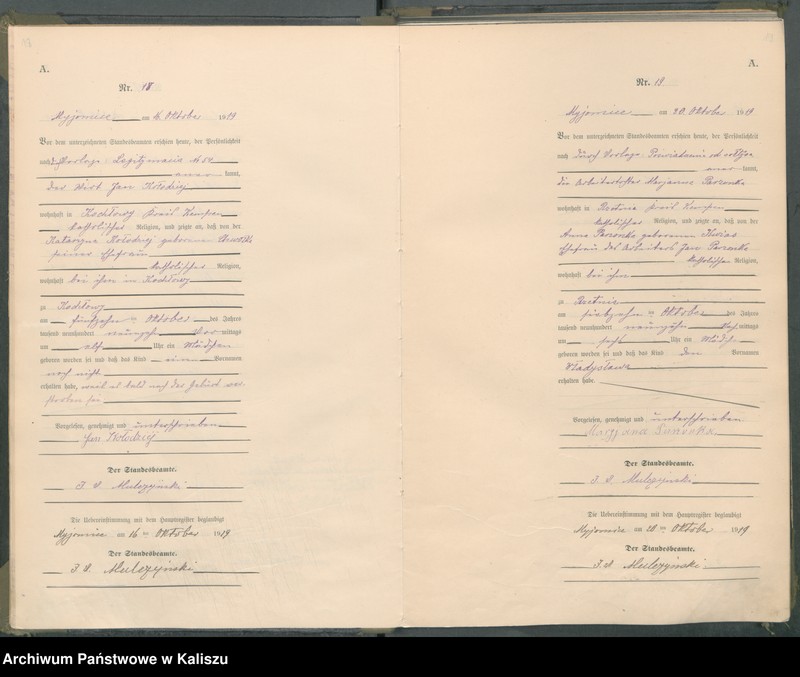 A.
Nr. 18
Myjomice am 16. Oktober 1919
Vor dem unterzeichneten Standesbeamten erschien heute, der Persönlichkeit
nach Vorlage Legitymacie
kannt,
der Wirt Jan Kołodziej
wohnhaft in Kochłowy Kreis Kempen
katholischer Religion, und zeigte an, daß von der
geborene
seiner Ehefrau
katholischer Religion,
wohnhaft bei ihm in Kochłowy
zu Kochłowy
am fünfzehn ten Oktober des Jahres
tausend neunhundert neunzehn Vormittags
um elf Uhr ein Mädchen
geboren worden sei und daß das Kind einen Vornamen
noch nicht
erhalten habe, weil es bald nach der Geburt ver-
storben sei
Vorgelesen, genehmigt und unterschrieben
Jan Kołodziej
Der Standesbeamte.
J. V. Mulczyński
Die Uebereinstimmung mit dem Hauptregister beglaubigt
Myjomice am 16 ten Oktober 1919
Der Standesbeamte.
J. V. Mulczyński
A.
Nr. 19
Myjomice am 20. Oktober 1919
Vor dem unterzeichneten Standesbeamten erschien heute, der Persönlichkeit
nach durch Vorlage
kannt,
die Arbeiterstochter Marjanna
wohnhaft in Kreis Kempen
katholischer Religion, und zeigte an, daß von der
Anna geborenen
Ehefrau des Arbeiters Jan
katholischer Religion,
wohnhaft bei ihm
zu
am ten Oktober des Jahres
tausend neunhundert neunzehn mittags
um sechs Uhr ein Mädchen
geboren worden sei und daß das Kind den Vornamen
Władysława
erhalten habe
Vorgelesen, genehmigt und unterschrieben
Der Standesbeamte.
J. V. Mulczyński
Die Uebereinstimmung mit dem Hauptregister beglaubigt
Myjomice am 20 ten Oktober 1919
Der Standesbeamte.
J. V. Mulczyński
Archiwum Państwowe w Kaliszu